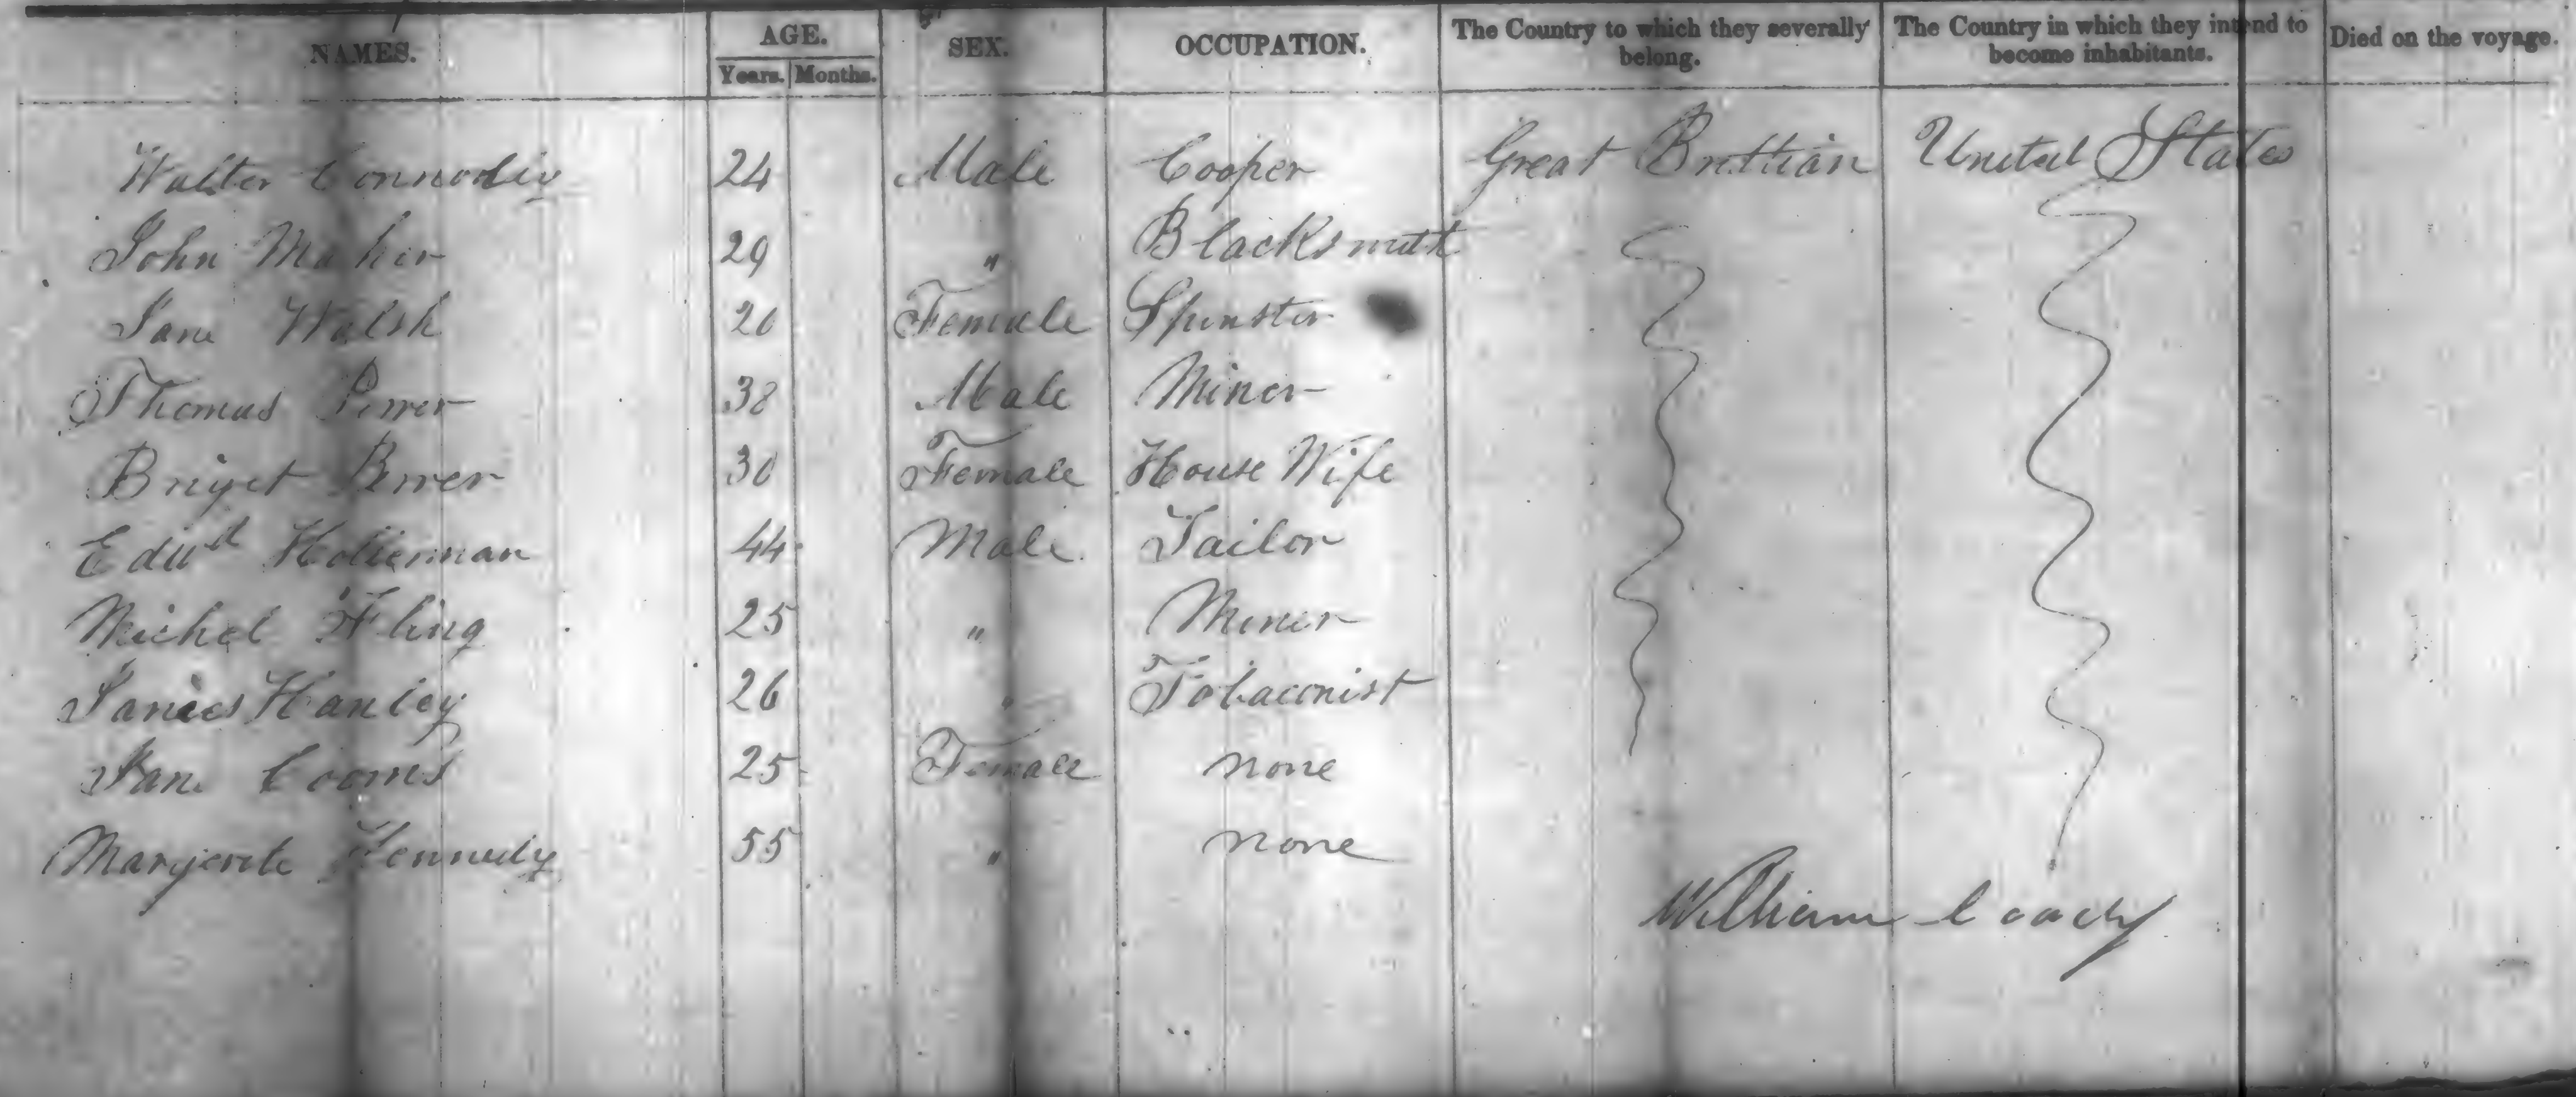 NAMES. AGE. SEX. OCCUPATION. The Country to which they severally belong. The Country in which they intend to become inhabitants. Died on the voyage.
Years. Months.
Walter 24 Male Cooper Great Brittian United States
John Maher 29 " Blacksmith
Jane Walsh 20 Female Spinster
Thomas Power 38 Male Miner
Briget Power 30 Female House Wife
Edwd 44 Male Tailor
Michel Fling 25 " Miner
James Hanley 26 " Tobaconist
Jane Cooms 25 Female none
Margerete Kennedy 55 " none
William